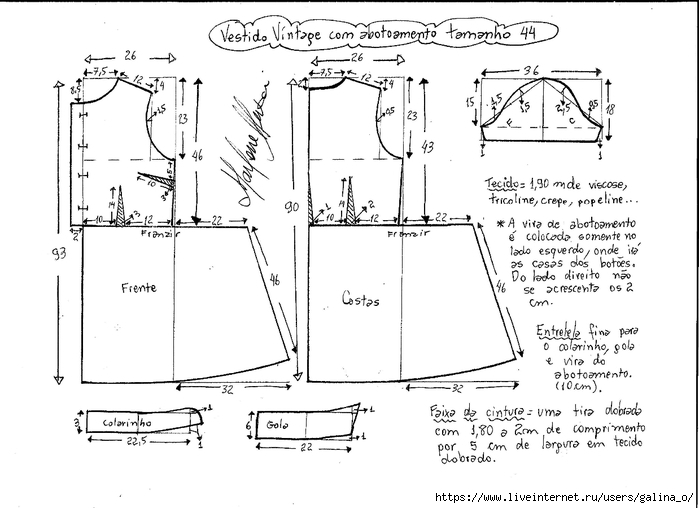 Vestido Vintage com abotoamento tamanho 44
26
7,5
12
4
8,5
1,5
23
46
5
10
3
14
3
10
12
22
2
Franzir
93
Frente
46
32
26
7,5
12
4
0,5
23
43
90
1
14
2
10
12
22
Franzir
Costas
46
32
36
15
1,5
1,5
2,5
0,5
18
F
C
1
1
Tecido = 1,90 m de viscose,
tricoline, crepe, popeline...
* A vira de abotoamento
é colocada somente no
lado esquerdo, onde irá
as casas dos botões.
Do lado direito não
se acrescenta os 2
cm.
Entretela fina para
o colarinho, gola
e vira do
abotoamento.
(10cm).
Faixa da cintura = uma tira dobrada
com 1,80 a 2m de comprimento
por 5 cm de largura em tecido
dobrado.
3
Colarinho
1
1
22,5
6
Gola
1
1
22
https://www.liveinternet.ru/users/galina_o/